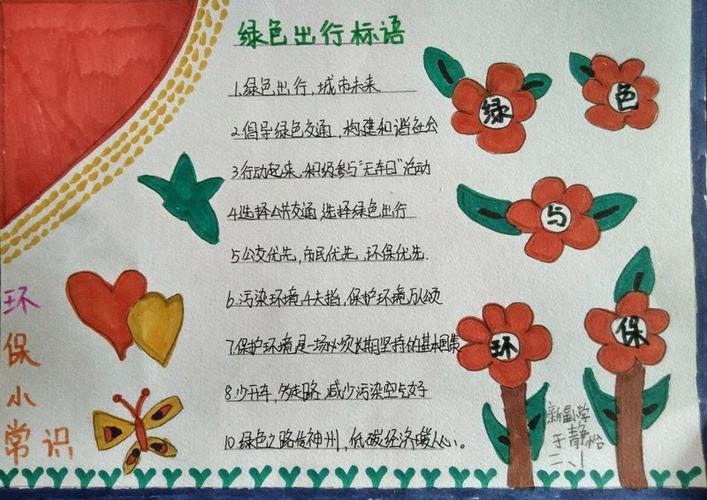 绿色出行标语
1.绿色出行,城市未来
2.倡导绿色交通,构建和谐社会
3.行动起来,积极参与"无车日"活动
4.选择公共交通 选择绿色出行
5.公交优先,市民优先,环保优先.
6.污染环境千夫指,保护环境万人颂
7.保护环境是一场必须长期坚持的基本国策
8.少开车,多走路,减少污染空气好
10.绿色之路传神州,低碳经济暖人心。
绿
色
与
环
保
环
保
小
常识
于静怡
二、1